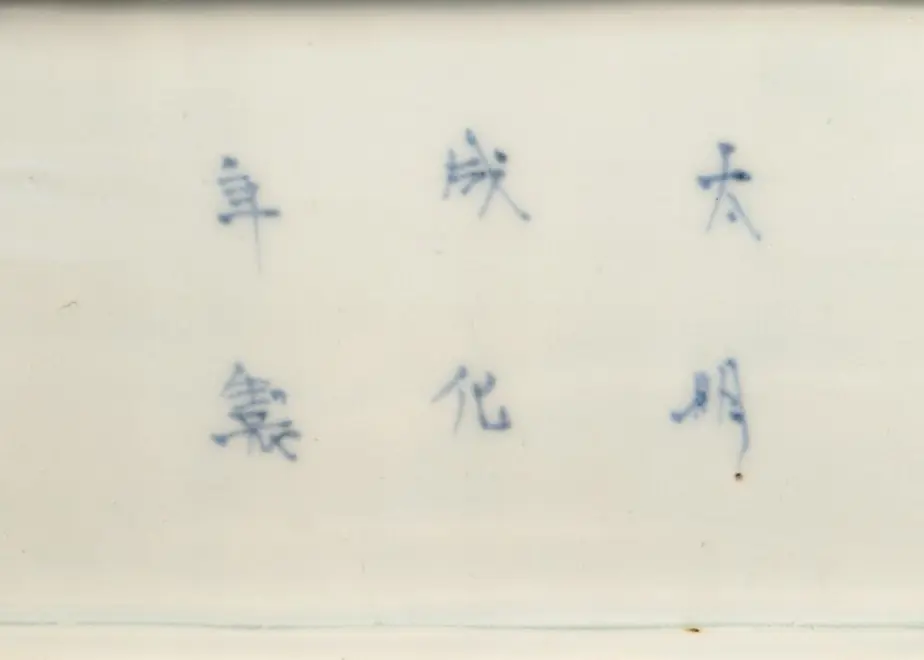 太明
成化
年製